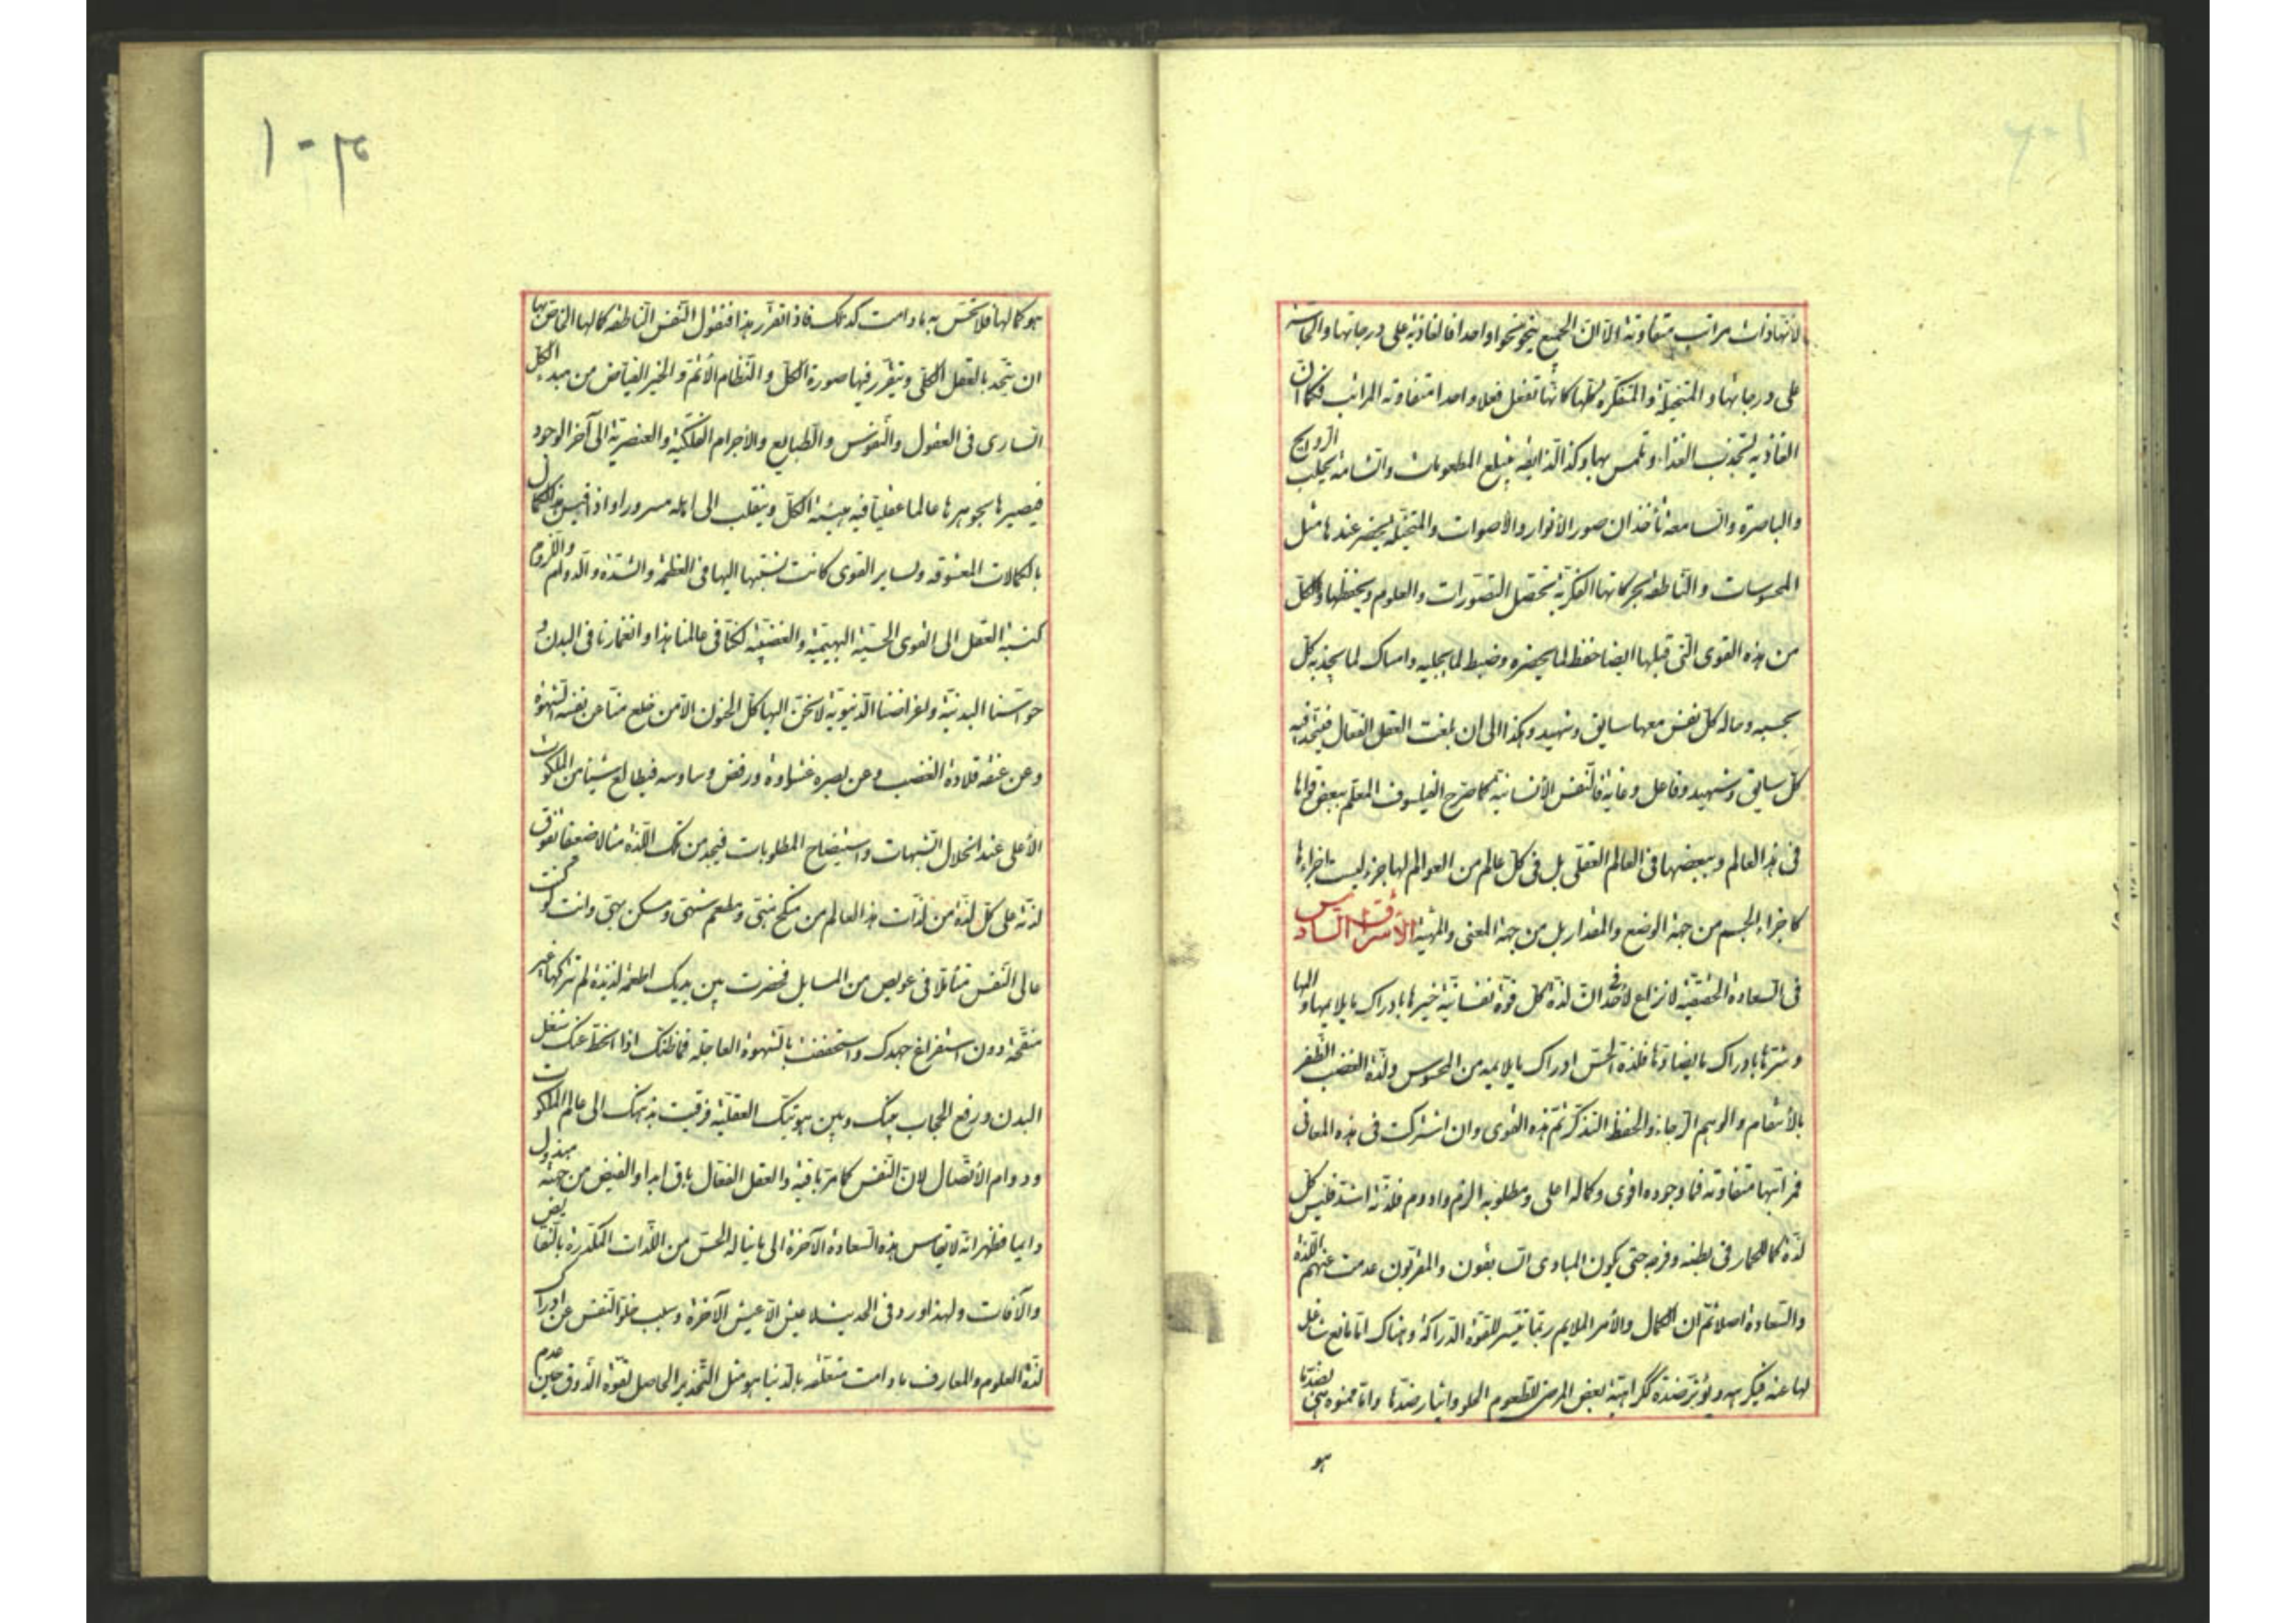 لأنها ذات مراتب متفاوتة الا ان الجميع ينحو نحوا واحدا فالغاذية على درجاتها والحاسة
على درجاتها والمتخيلة والمتفكرة كلها كانها تفعل فعلا واحدا متفاوتة المراتب فكما ان
الغاذية تجذب الغذاء و تلمس بها وكذا الذايقه يبتلع المطعومات والشامة يجلب الروايح
والباصرة والسامعة تأخذان صور الأنوار والأصوات والمتخيلة يحضر عندها مثل
المحسوسات والناطقة بحركاتها الفكرية تحصل التصورات والعلوم ويحفظها وكل
من هذه القوى التى قبلها ايضا حفظ لما يحضره وضبط لما يجلبه وامساك لما يجذبه كل
بحسبه وماله كل نفس معها سايق وشهيد وهكذا الى ان بلغت العقل الفعال فيتحد فيه
كل سايق وشهيد وفاعل وغاية فالنفس الأنسانية كما صرح الفيلسوف المعلم ببعض قواها
فى هذا العالم وببعضها فى العالم العقلى بل فى كل عالم من العوالم لها جزء ليست اجزاءها
كاجزاء الجسم من جهة الوضع والمقدار بل من جهة المعنى والمهية الأشراق السادس
فى السعادة الحقيقية لا نزاع لأحد فى ان لذة كل قوة نفسانية خيرها بادراك ما يلايمها والمها
وشرها بادراك ما يضادها فلذة الحس ادراك ما يلايمه من المحسوس ولذة الغضب الظفر
بالأنتقام والوهم الرجاء والحفظ التذكر ثم هذه القوى وان اشتركت فى هذه المعانى
فمراتبها متفاوتة فما وجوده اقوى وكماله اعلى ومطلوبه الزم وادوم فلذته اشد فليس كل
لذة كما للحمار فى بطنه وفرجه حتى يكون المبادى السابقون والمقربون عدمت عنهم اللذة
والسعادة اصلا ثم ان الكمال والأمر الملايم ربما تيسر للقوة الدراكة وهناك اما مانع شاغل
لها عنه فيكرهه ويؤثر ضده ككراهية بعض المرضى للطعوم الحلو وايثار ضدها واما ممنوة بضدها
هو
١٠٣
هو كمالها فلا تحس به ما دامت كذلك فاذا تقرر هذا فنقول النفس الناطقة كمالها الخاص بها
ان يتحد بالعقل الكلى ويتقرر فيها صورة الكل والنظام الأتم والخير الفياض من مبدء الكل
السارى فى العقول والنفوس والطبايع والأجرام الفلكية والعنصرية الى آخر الوجود
فيصير بجوهرها عالما عقليا فيه هيئة الكل وينقلب الى اهله مسرورا واذا قيس هذا الكمال
بالكمالات المعشوقه لساير القوى كانت نسبتها اليها فى العظمة والشدة والدوام واللزوم
كنسبة العقل الى القوى الحسية البهيمية والغضبية لكنا فى عالمنا هذا وانغمارنا فى البدن و
حواسنا البدنية ولغراضنا الدنيوية لا نحن اليها كل الحنون الا من خلع منا عن نفسه الشهوة
وعن عنقه قلادة الغضب وعن بصره غشاوة ورفض وساوسه فيطالع شيئا من الملكوت
الأعلى عند انحلال الشبهات واستيضاح المطلوبات فيجد من تلك اللذة مثالا ضعيفا تفوق
لذته على كل لذة من لذات هذا العالم من منكح شهى ومطعم شهى ومسكن بهى وانت لو كنت
عالى النفس متأملا فى عويص من المسايل فحضرت بين يديك اطعمة لذيذة لم تتركها غير
منقحة دون استفراغ جهدك واستخففت بالشهوة العاجلة فما ظنك اذا انحط عنك شغل
البدن ورفع الحجاب بينك وبين هويتك العقلية فرقيت بذهنك الى عالم الملكوت
ودوام الأتصال لان النفس كما مر باقية والعقل الفعال باق ابدا والفيض من جهته مبذول
دايما فظهر انه لا تقاس هذه السعادة الآخرة الى ما يناله الحس من اللذات المكدرة بالنقايص
والآفات ولهذا ورد فى الحديث لا عيش الا عيش الآخرة وسبب خلو النفس عن ادراك
لذة العلوم والمعارف ما دامت متعلقه بالدنيا هو مثل التخدير الحاصل لقوة الذوق حين عدم